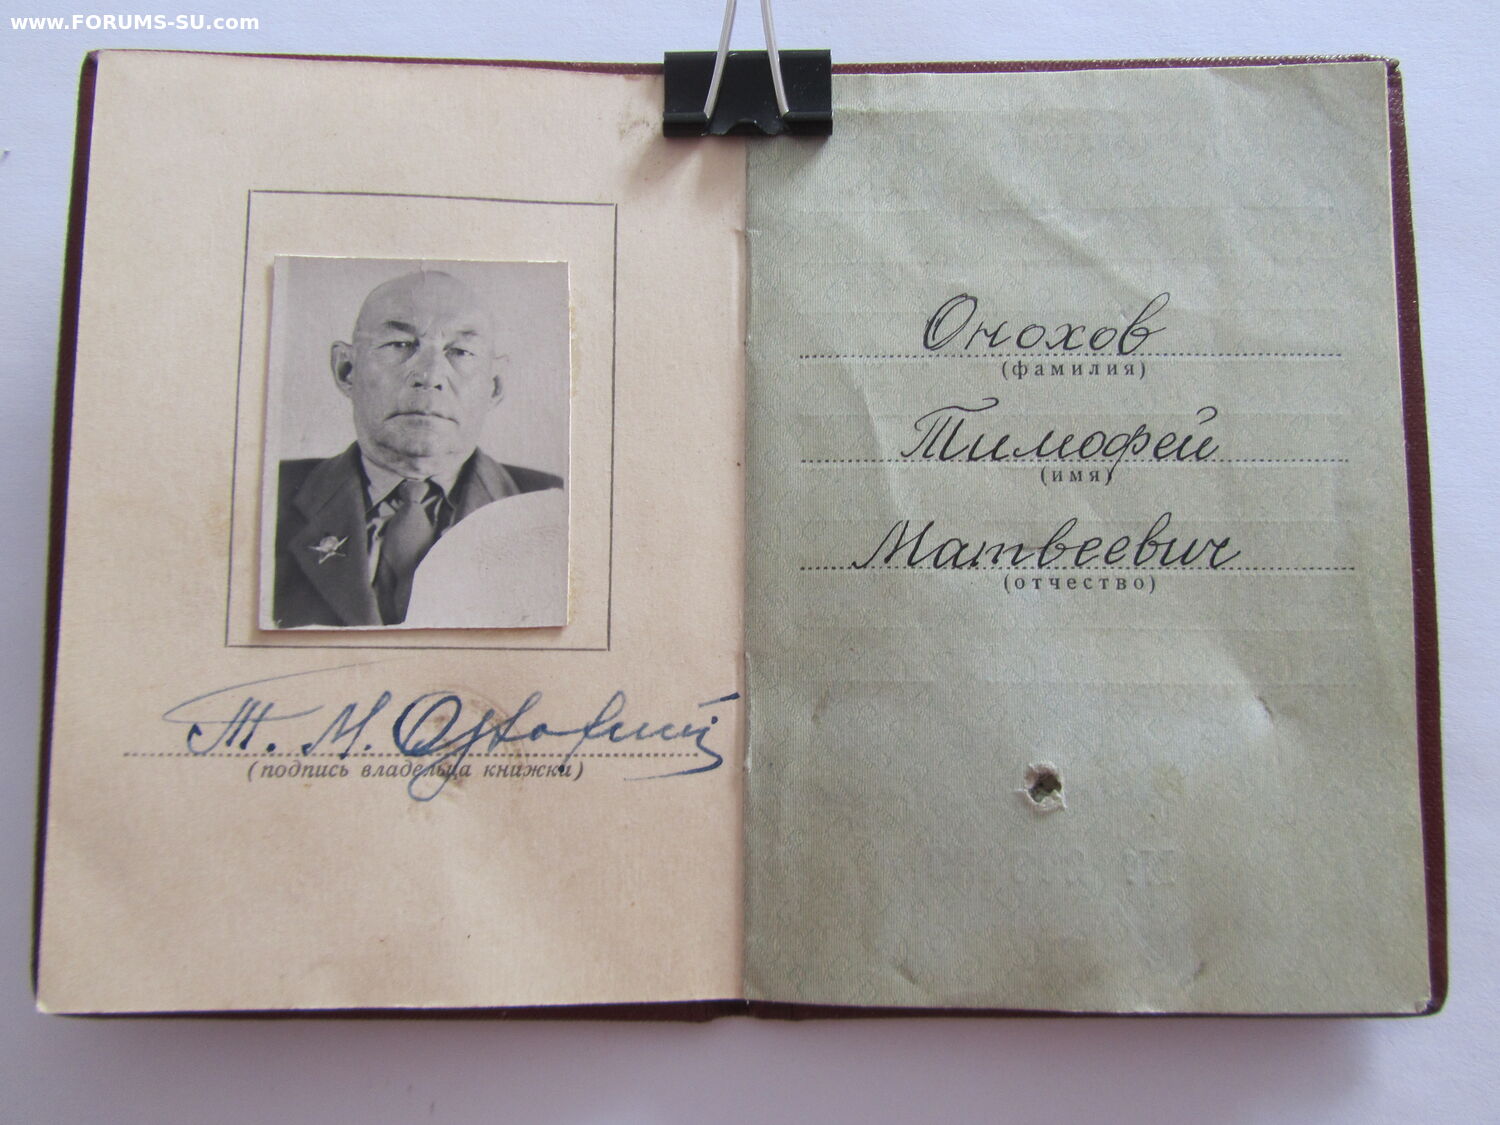 www.FORUMS-SU.com
Т. М.
(подпись владельца книжки)
Онохов
(фамилия)
Тимофей
(имя)
Матвеевич
(отчество)